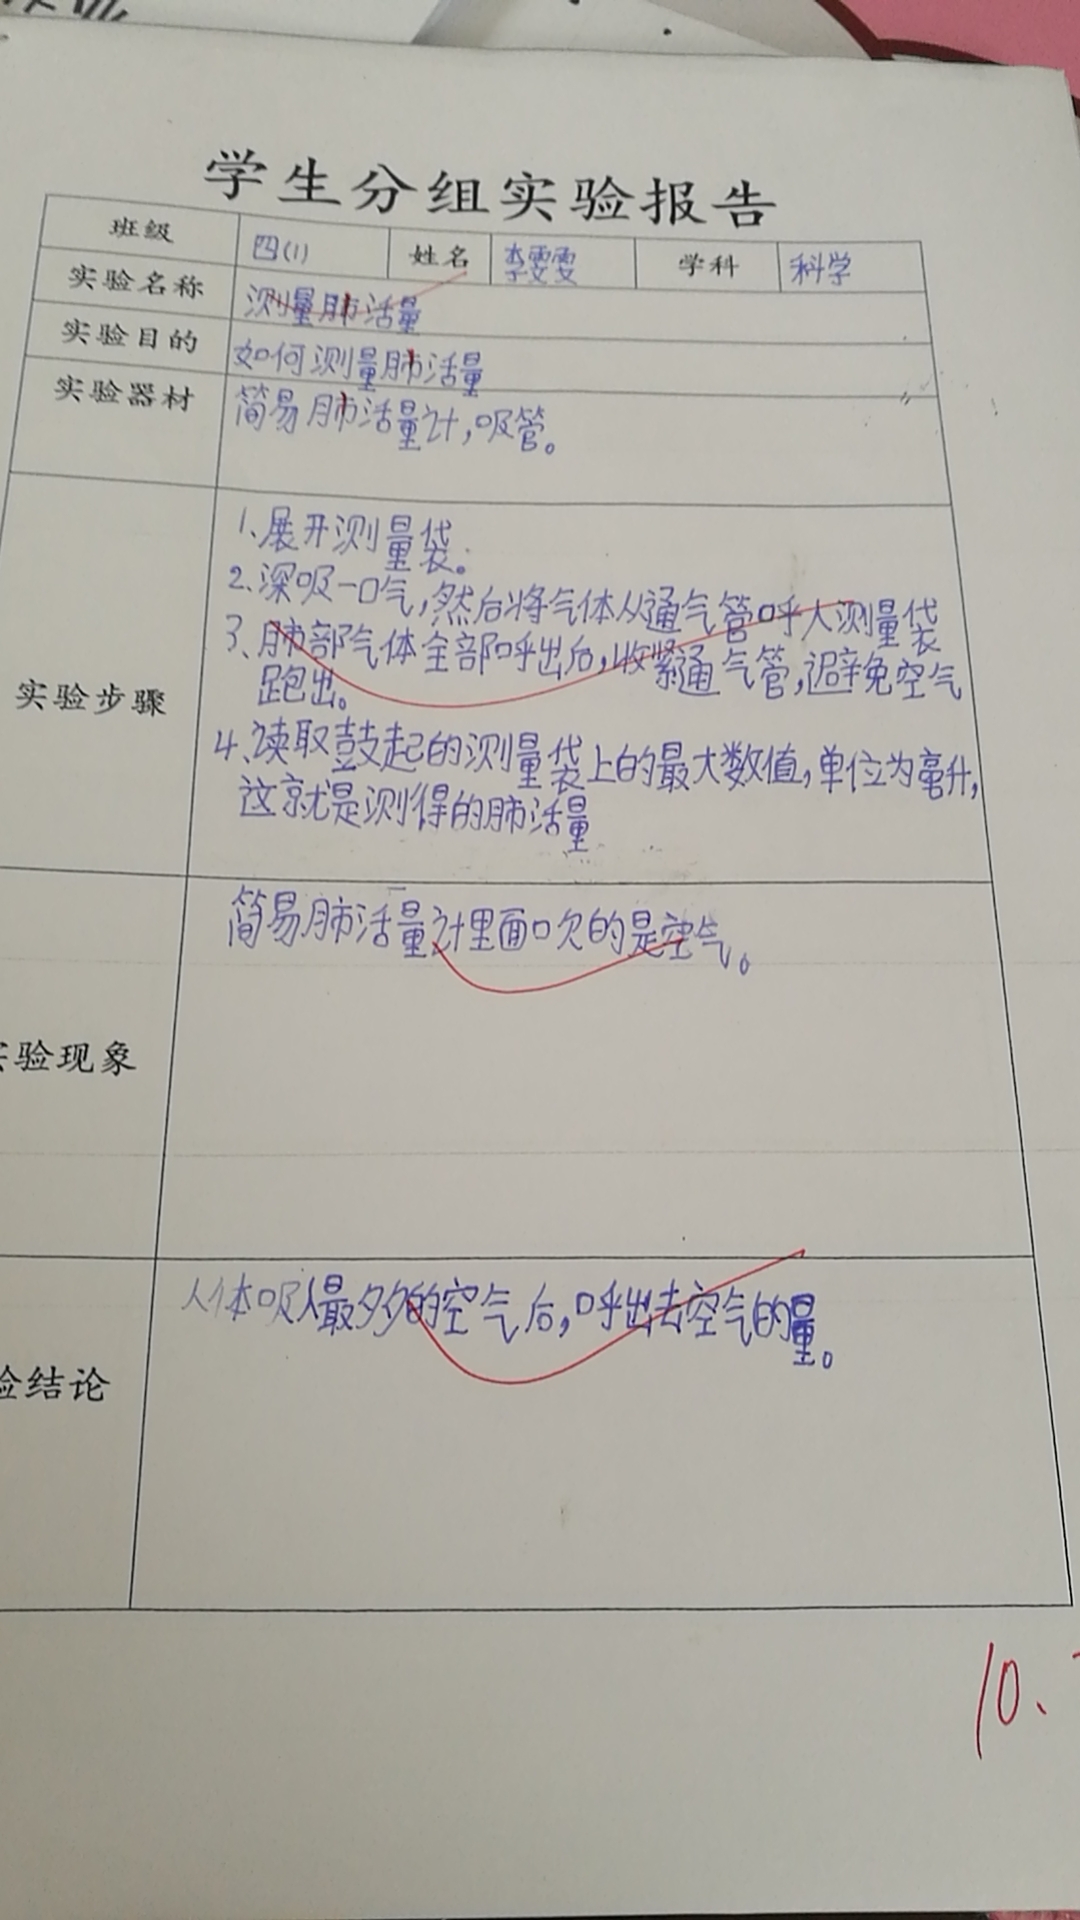 学生分组实验报告
班级 四(1) 姓名 李雯雯 学科 科学
实验名称 测量肺活量
实验目的 如何测量肺活量
实验器材 简易肺活量计,吸管。
实验步骤
1、展开测量袋。
2、深吸一口气,然后将气体从通气管呼入测量袋
3、肺部气体全部呼出后,收紧通气管,避免空气
跑出。
4、读取鼓起的测量袋上的最大数值,单位为毫升,
这就是测得的肺活量
验现象
简易肺活量计里面吹的是空气。
验结论
人体吸入最多的空气后,呼出去空气的量。
10.